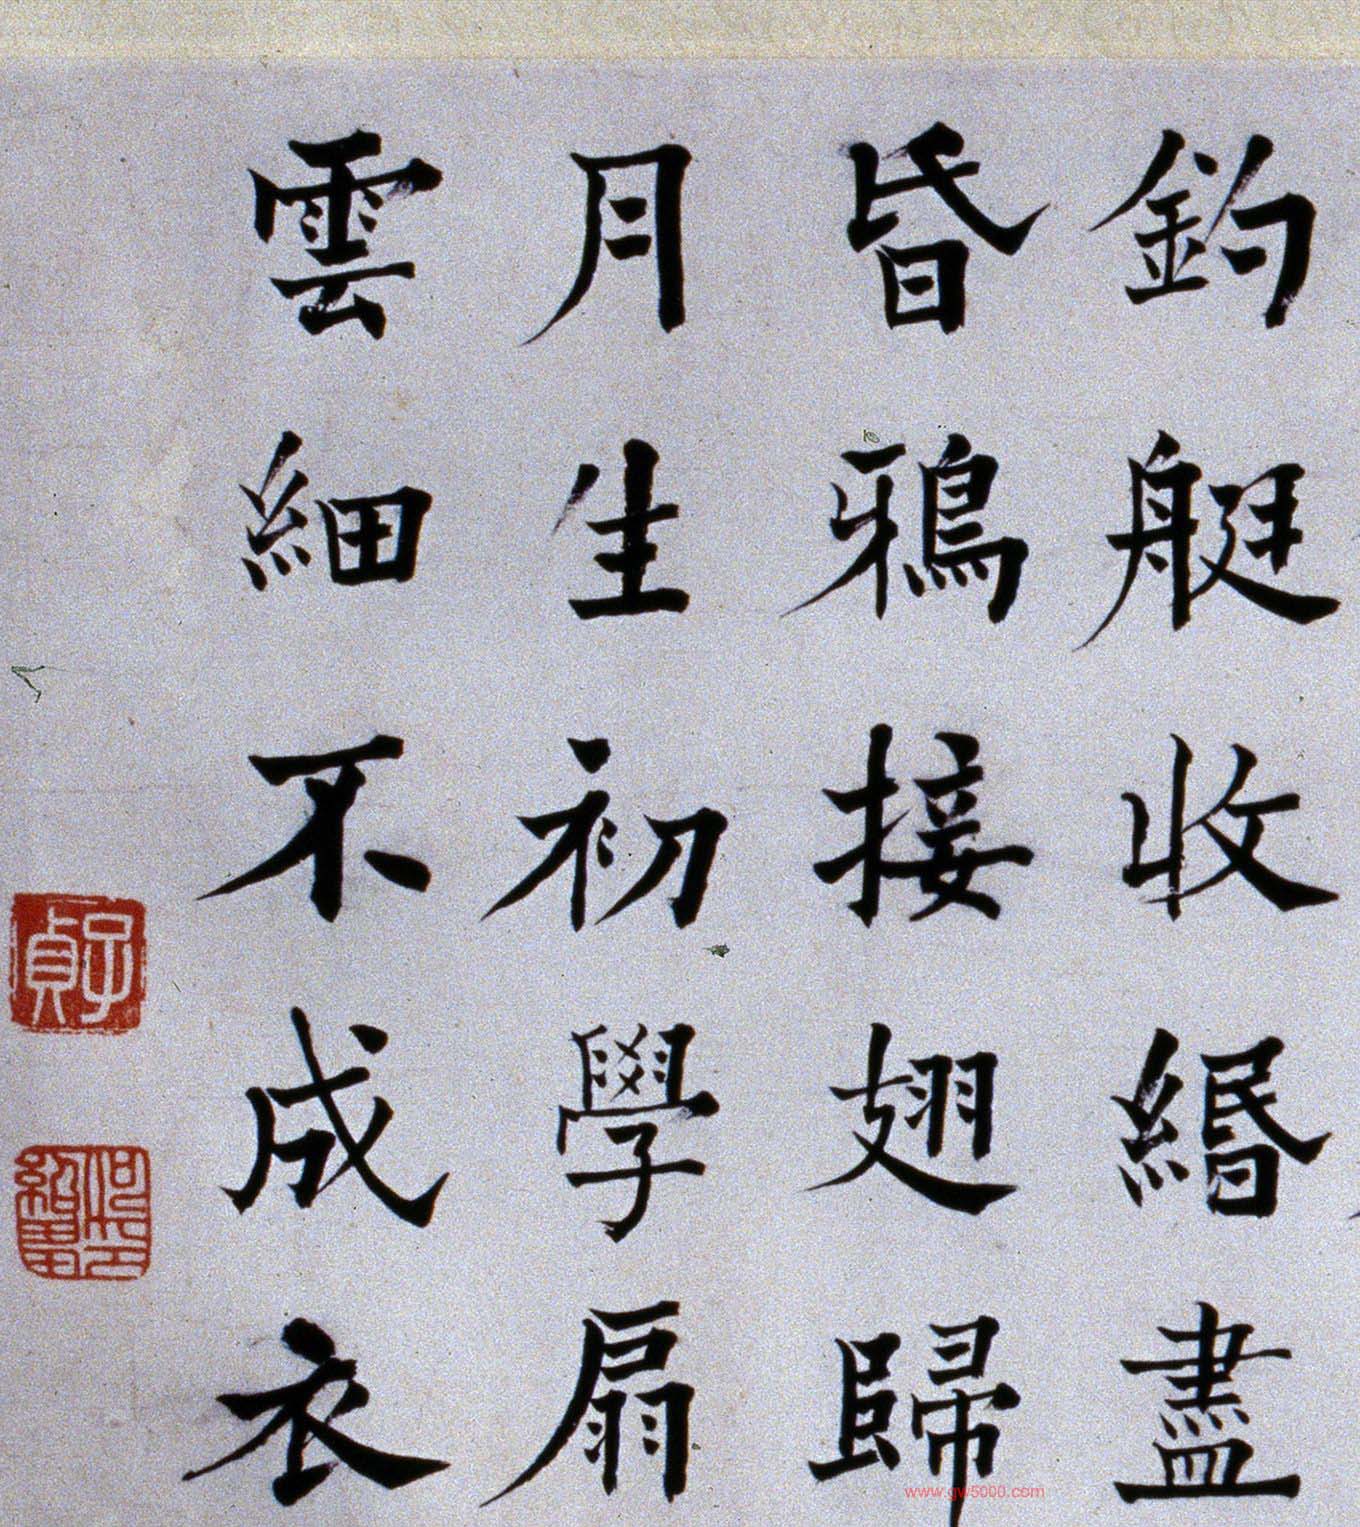 釣艇收緡盡
昏鴉接翅歸
月生初學扇
雲細不成衣
子貞
www.gw5000.com